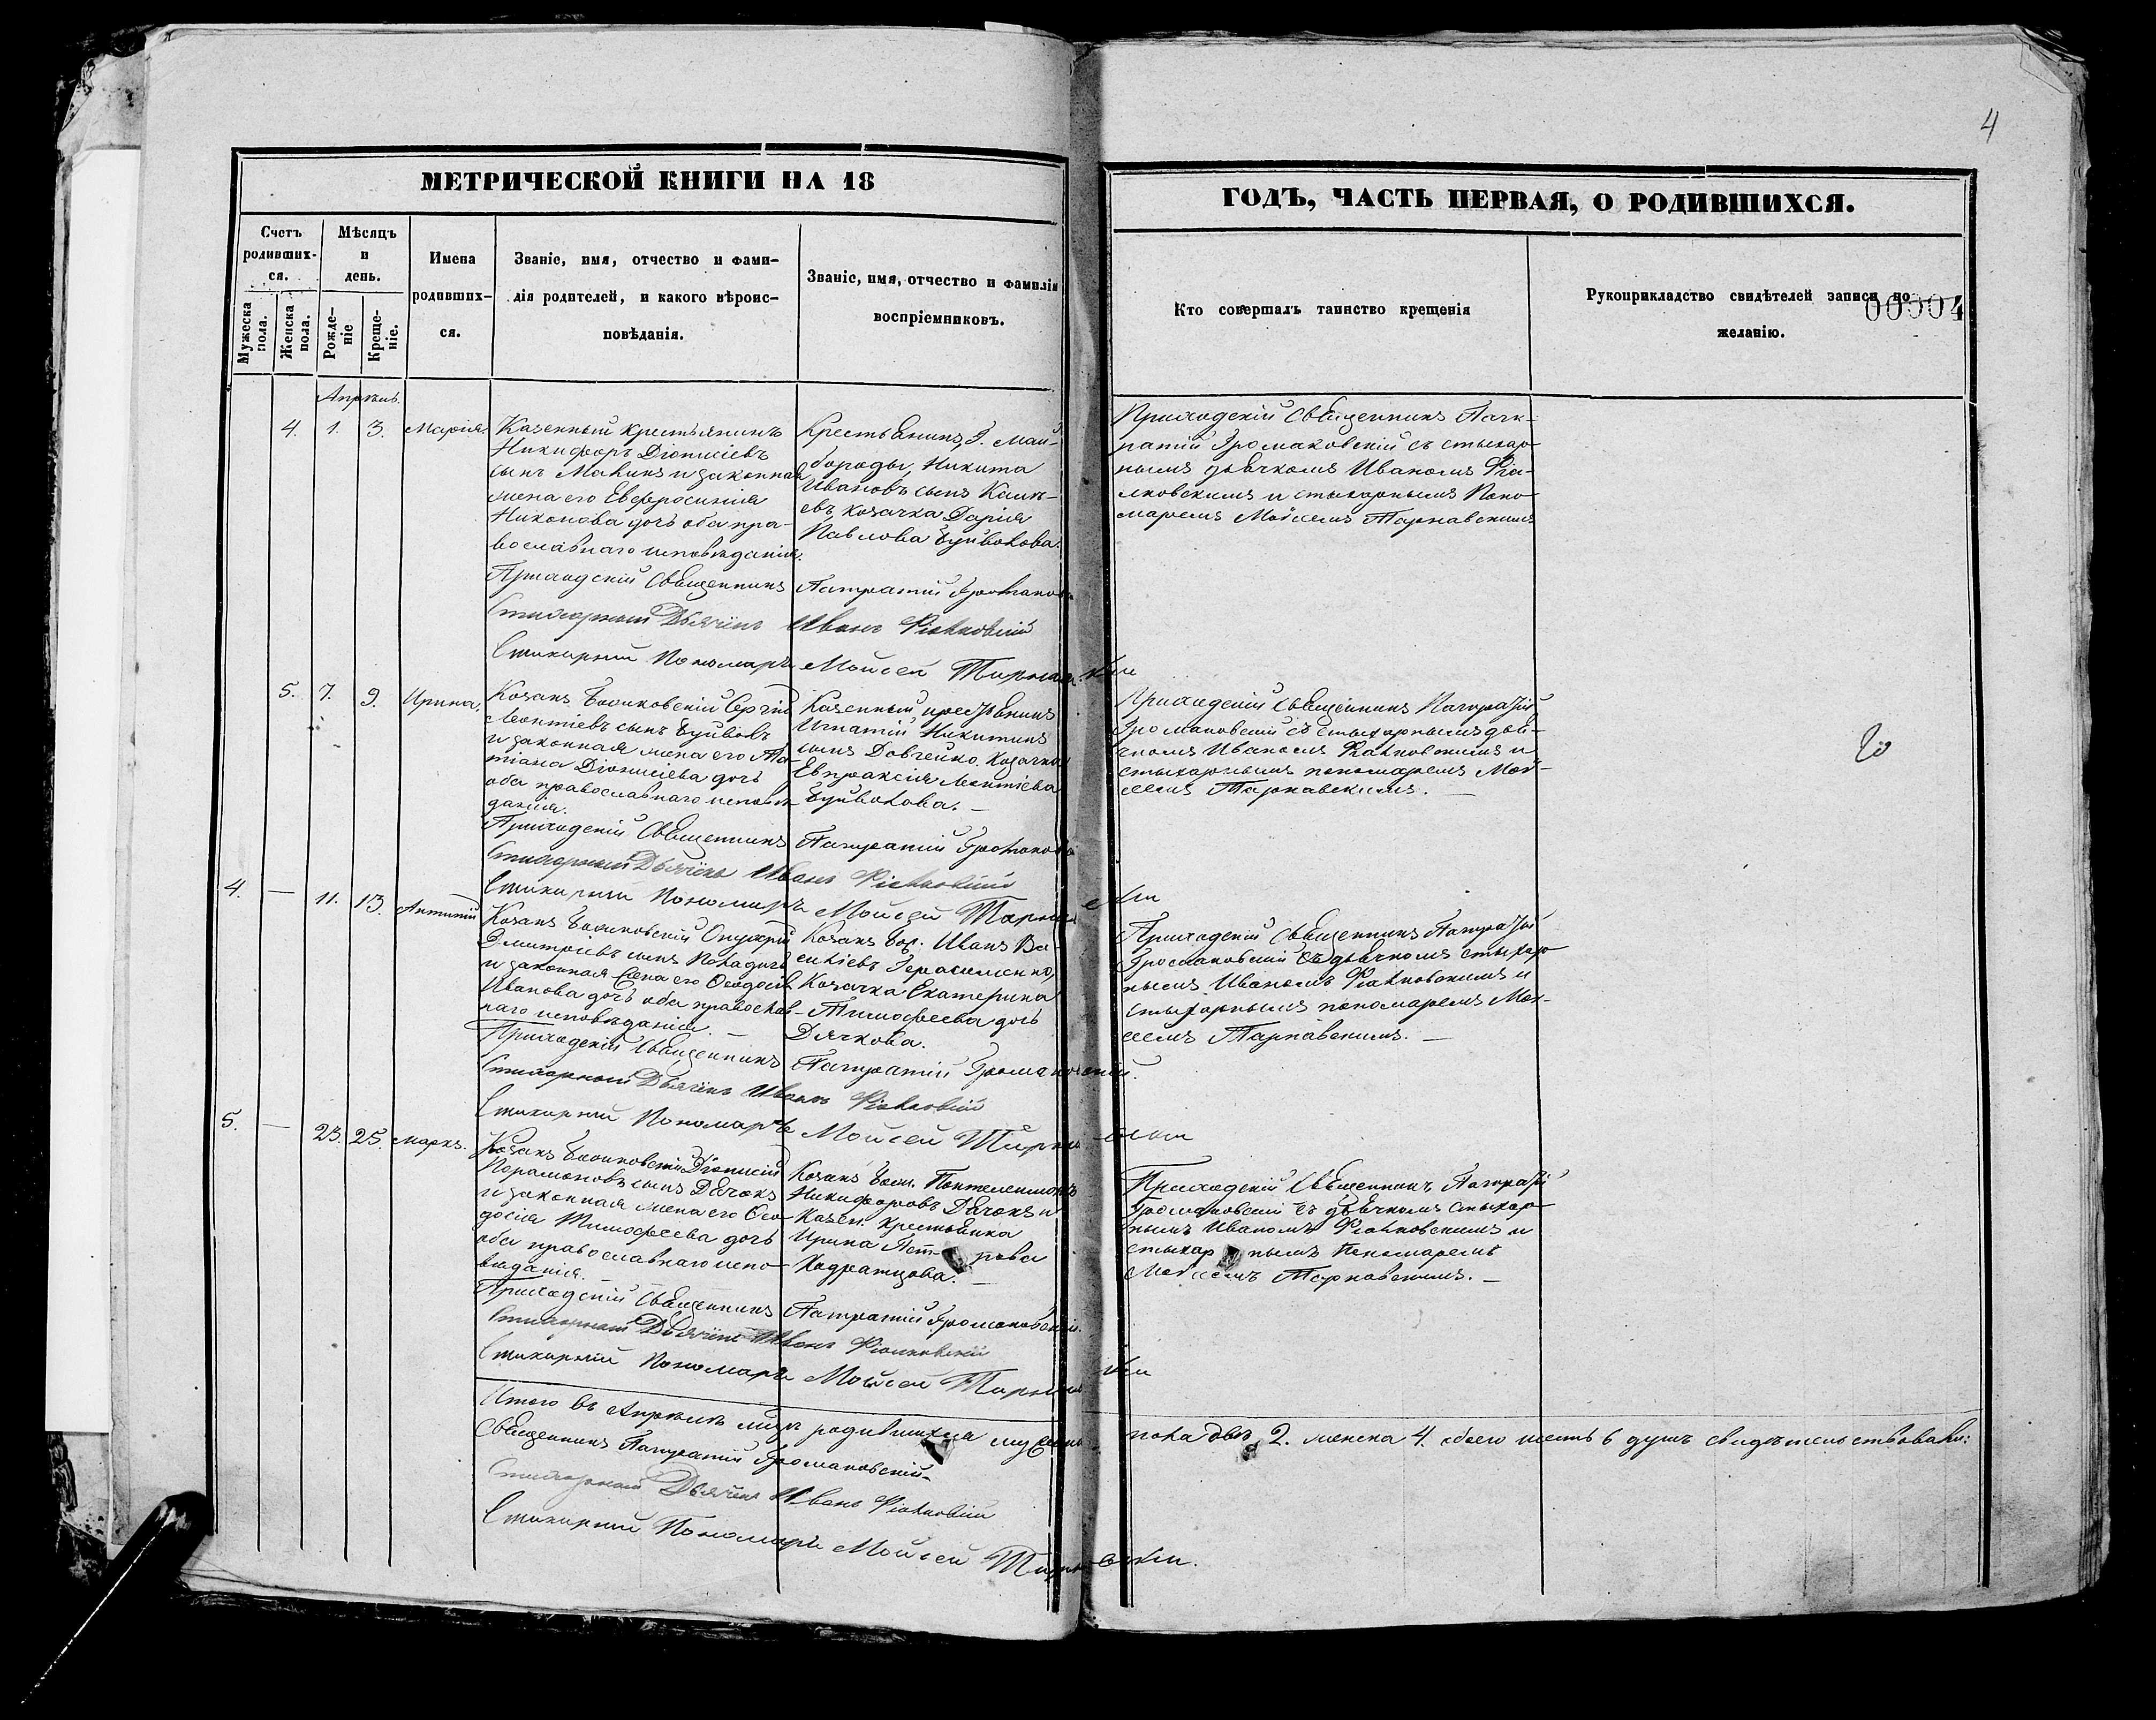 4
МЕТРИЧЕСКОЙ КНИГИ НА 18
ГОДЪ, ЧАСТЬ ПЕРВАЯ, О РОДИВШИХСЯ.
Счетъ родивших-ся.
Мужеска пола.
Женска пола.
Мѣсяцъ и день.
Рожде-ніе
Креще-ніе.
Имена
родивших-
ся.
Званіе, имя, отчество и фами-
лія родителей, и какого вѣроис-
повѣданія.
Званіе, имя, отчество и фамилія
воспріемниковъ.
Кто совершалъ таинство крещенія
Рукоприкладство свидѣтелей записи по
желанію.
00004
Апрѣль.
4. 1. 3. Марія.
Казенный крестьянинъ
Никифоръ Діонисіевъ
сынъ и законная
жена его Евфросинія
Никонова дочь оба пра-
вославнаго исповѣданія.
Крестьянинъ
Никита
Ивановъ сынъ
козачка Дарія
Павлова Буйволова.
Приходскій Священникъ Панк-
ратій Громаковскій съ стихар-
нымъ дьячкомъ Иваномъ Фіа-
лковскимъ и стихарнымъ Поно-
маремъ Моисеемъ Тарнавскимъ
Приходскій Священникъ Панкратій Громаковскій
Стихарный Дьячекъ Иванъ Фіалковскій
Стихарный Пономарь Мойсей Тарнавскій
5. 7. 9. Ирина.
Козакъ Сергій
Леонтіевъ сынъ Буйволъ
и законная жена его Та-
тіана Діонисіева дочь
оба православнаго исповѣ-
данія.
Казенный крестьянинъ
Игнатій Никитинъ
сынъ Довгейко. Козачка
Евпраксія Леонтіева
Буйволова. —
Приходскій Священникъ Панкратій
Громаковскій съ стихарнымъ дья-
чкомъ Иваномъ Фіалковскимъ и
стихарнымъ пономаремъ Мой-
сеемъ Тарнавскимъ. —
Приходскій Священникъ Панкратій Громаковскій
Стихарный Дьячекъ Иванъ Фіалковскій
Стихарный Пономарь Мойсей Тарнавскій
4. — 11. 13. Антипій
Козакъ Онуфрій
Дмитріевъ сынъ
и законная жена его Феодосія
Иванова дочь оба православ-
наго исповѣданія. —
Козакъ Иванъ Ва-
силіевъ Герасименко,
Козачка Екатерина
Тимофеева дочь
Дячкова.
Приходскій Священникъ Панкратій
Громаковскій съ дьячкомъ стихар-
нымъ Иваномъ Фіалковскимъ и
стихарнымъ пономаремъ Мой-
сеемъ Тарнавскимъ. —
Приходскій Священникъ Панкратій Громаковскій.
Стихарный Дьячекъ Иванъ Фіалковскій
Стихарный Пономарь Мойсей Тарнавскій
5. — 23. 25. Маркъ.
Козакъ Діонисій
Парамоновъ сынъ Дячокъ
и законная жена его Фео-
досія Тимофеева дочь
оба православнаго испо-
вѣданія.
Козакъ Пантелеимонъ
Никифоровъ Дячокъ и
Казен. крестьянка
Ирина Пет- рова
Приходскій Священникъ Панкратій
Громаковскій съ дьячкомъ стихар-
нымъ Иваномъ Фіалковскимъ и
стихар нымъ Пономаремъ
Мойсеемъ Тарнавскимъ. —
Приходскій Священникъ Панкратій Громаковскій.
Стихарный Дьячекъ Иванъ Фіалковскій
Стихарный Пономарь Мойсей Тарнавскій
Итого въ Апрѣлѣ родившихся мужеска пола два 2. женска 4. обоего шесть 6 душъ свидѣтельствовали:
Священникъ Панкратій Громаковскій
Стихарный Дьячекъ Иванъ Фіалковскій
Стихарный Пономарь Мойсей Тарнавскій.